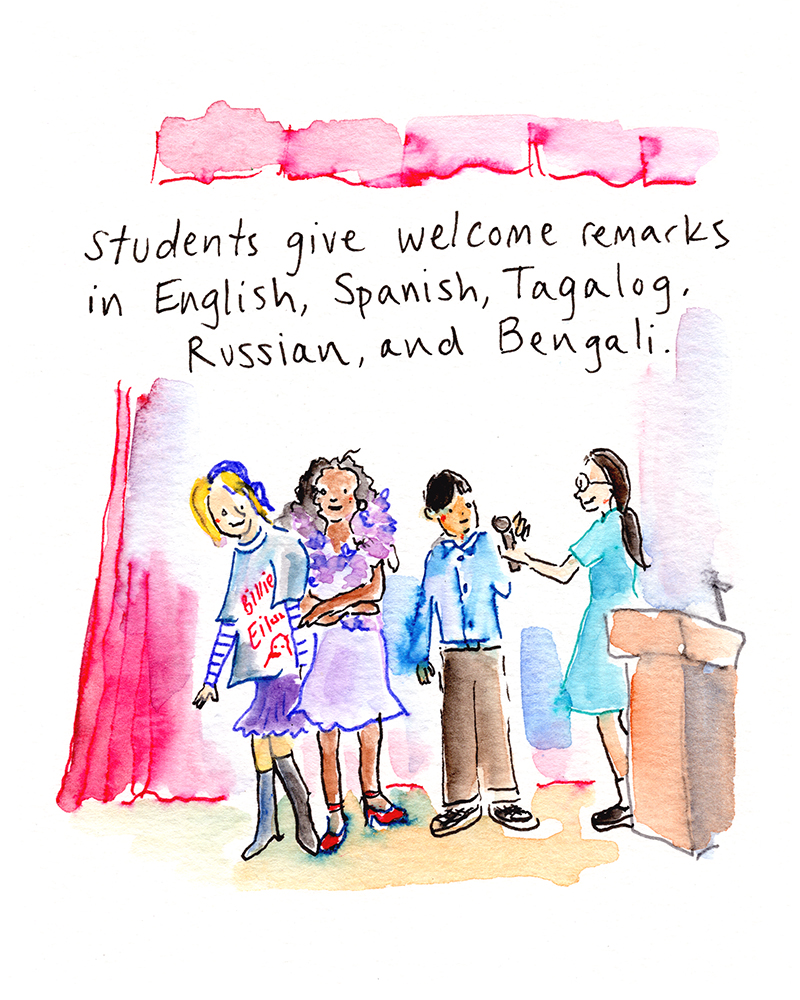 Students give welcome remarks
in English, Spanish, Tagalog,
Russian, and Bengali.
Billie
Eilish